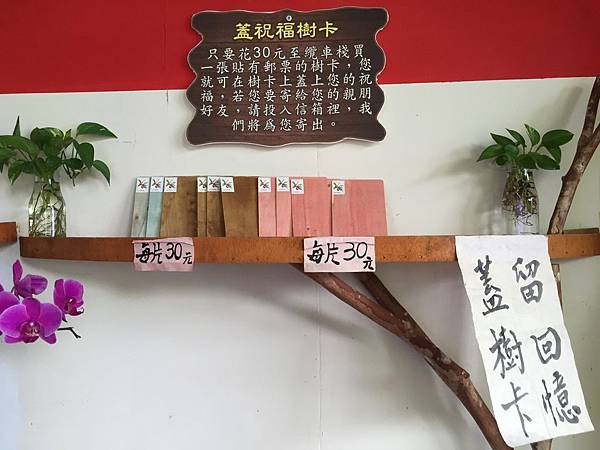 蓋祝福樹卡
只要花30元至纜車棧買
一張貼有郵票的樹卡，您
就可在樹卡上蓋上您的祝
福，若您要寄給您的親朋
好友，請投入信箱裡，我
們將為您寄出。
每片30元
每片30元
留回憶
蓋樹卡